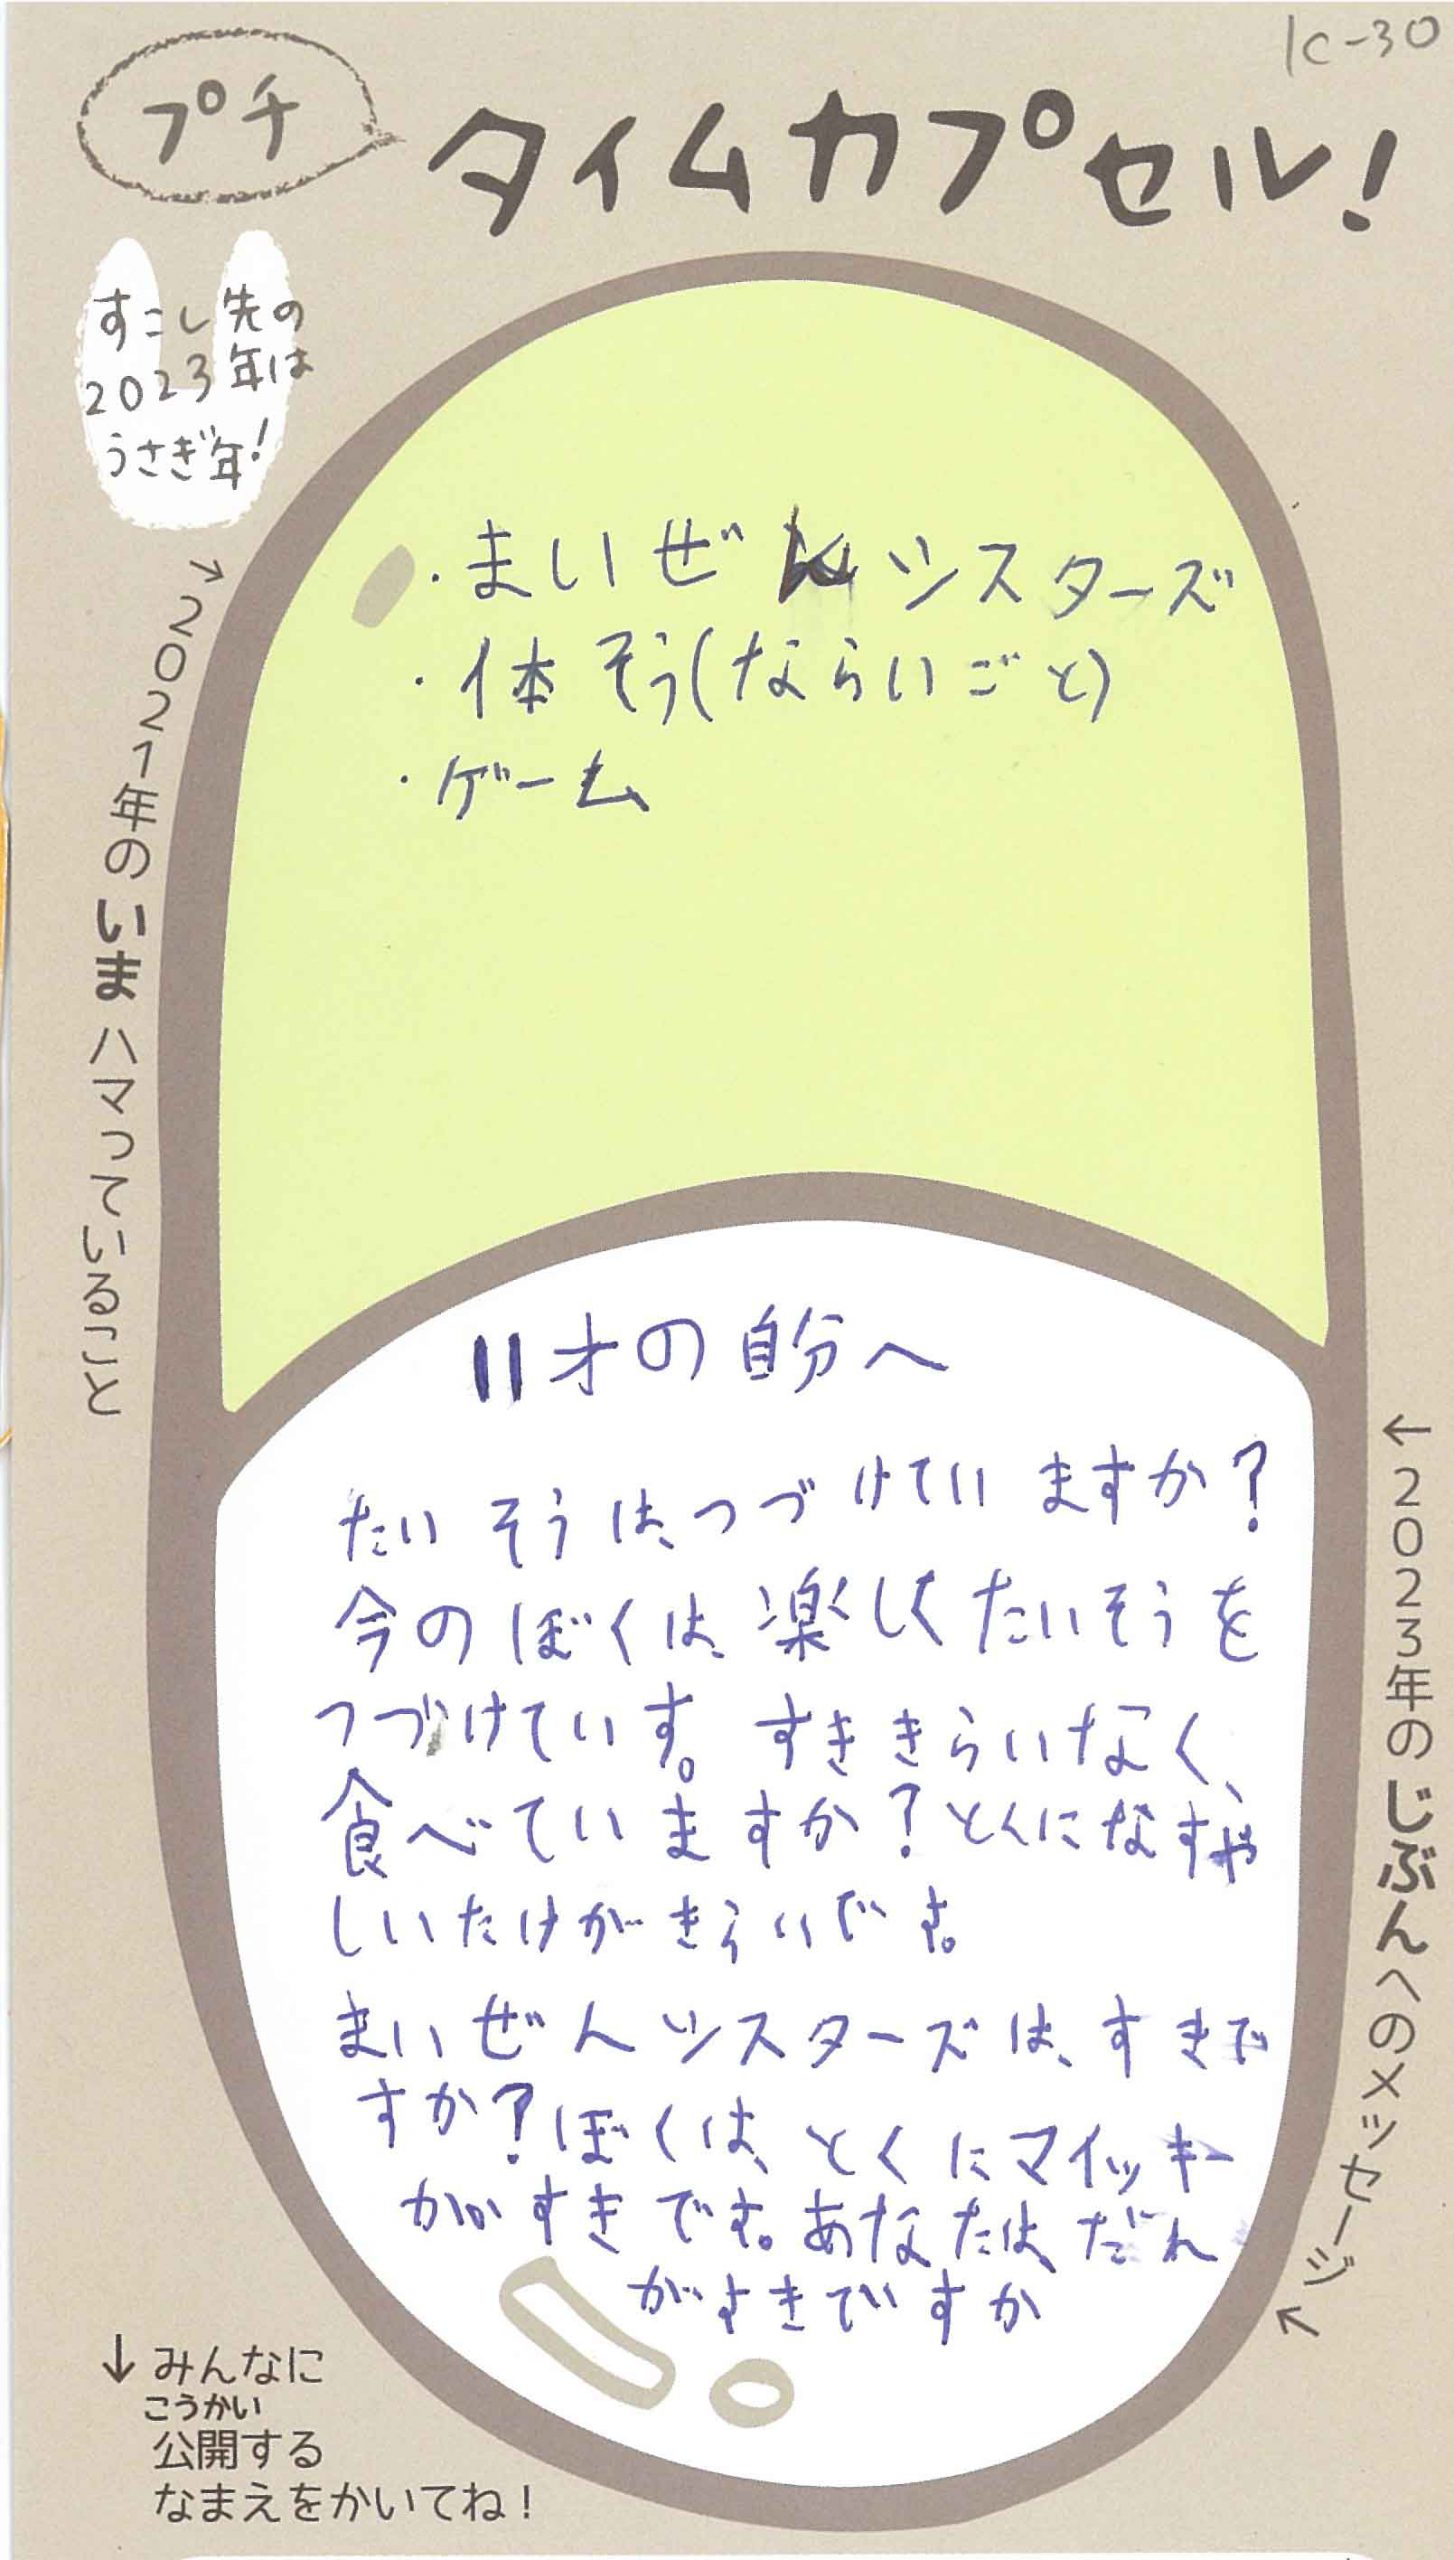 1C-30
プチ
タイムカプセル！
すこし先の
2023年は
うさぎ年！
→2021年のいまハマっていること
・まいぜんシスターズ
・体そう(ならいごと)
・ゲーム
11才の自分へ
たいそうは、つづけていますか？
今のぼくは、楽しくたいそうを
つづけています。すききらいなく、
食べていますか？とくになすや
しいたけがきらいです。
まいぜんシスターズは、すきで
すか？ぼくは、とくにマイッキー
がすきです。あなたは、だれ
がすきですか
←2023年のじぶんへのメッセージ
↓みんなに
こうかい
公開する
なまえをかいてね！